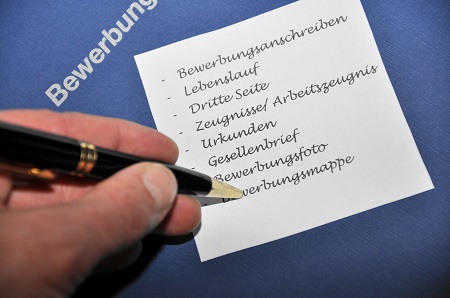 Bewerbung
- Bewerbungsanschreiben
- Lebenslauf
- Dritte Seite
- Zeugnisse/ Arbeitszeugnis
- Urkunden
Gesellenbrief
Bewerbungsfoto
Bewerbungsmappe